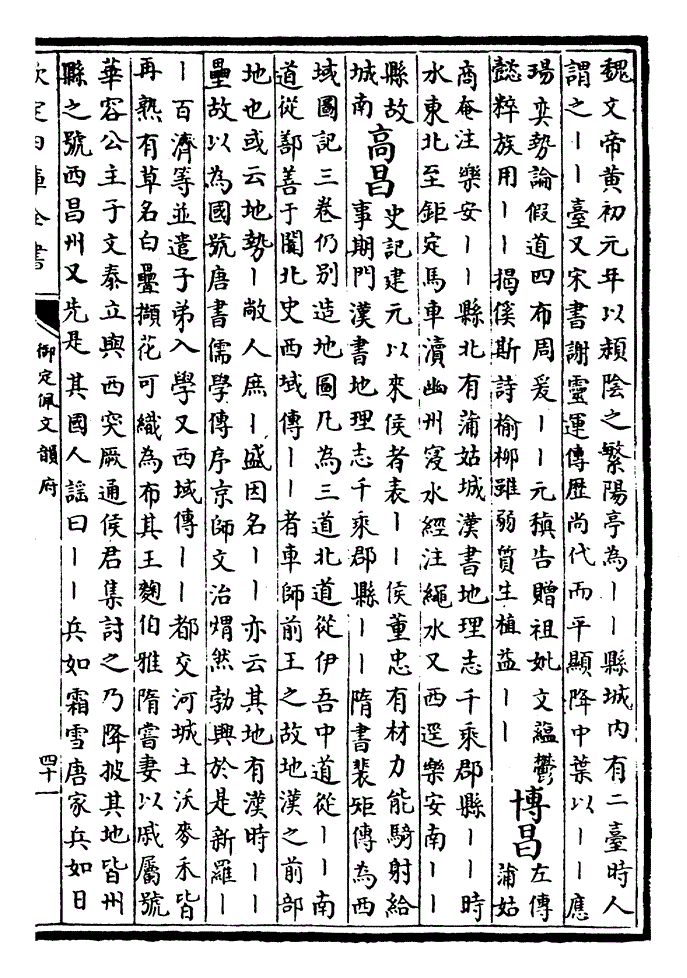 魏文帝黄初元年以潁陰之繁陽亭為丨丨縣城内有二臺時人
謂之丨丨臺又宋書謝靈運傳歴尚代而平顯降中葉以丨丨應
瑒奕勢論假道四布周爰丨丨元稹告贈祖妣文藴鬱
懿粹族用丨丨揭傒斯詩榆柳雖弱質生植益丨丨
博昌
左傳
蒲姑
商奄注樂安丨丨縣北有蒲姑城漢書地理志千乘郡縣丨丨時
水東北至鉅定馬車瀆幽州寖水經注繩水又西逕樂安南丨丨
縣故
城南
高昌
史記建元以來侯者表丨丨侯董忠有材力能騎射給
事期門漢書地理志千乘郡縣丨丨隋書裴矩傳為西
域圖記三卷仍别造地圖凡為三道北道從伊吾中道從丨丨南
道從鄯善于闐北史西域傳丨丨者車師前王之故地漢之前部
地也或云地勢丨敞人庶丨盛因名丨丨亦云其地有漢時丨丨
壘故以為國號唐書儒學傳序京師文治煟然勃興於是新羅丨
丨百濟等並遣子弟入學又西域傳丨丨都交河城土沃麥禾皆
再熟有草名白疊擷花可織為布其王麴伯雅隋嘗妻以戚屬號
華容公主子文泰立與西突厥通侯君集討之乃降披其地皆州
縣之號西昌州又先是其國人謡曰丨丨兵如霜雪唐家兵如日
欽定四庫全書
御定佩文韻府
四十一